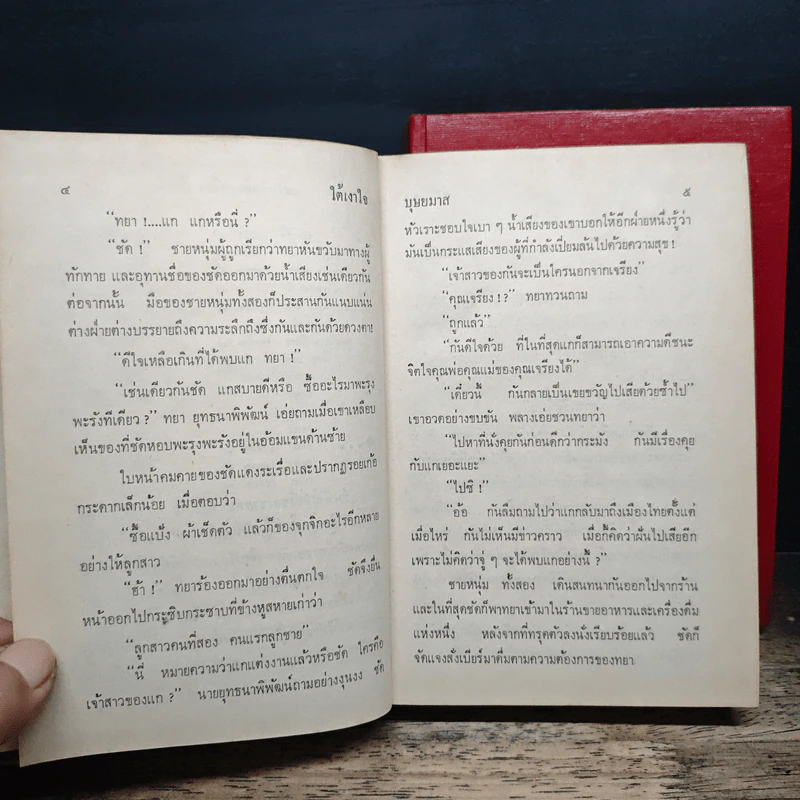 ๔ ใต้เงาใจ
“ทยา !....แก แกหรือนี่ ?”
“ชัด !” ชายหนุ่มผู้ถูกเรียกว่าทยาหันขวับมาทางผู้
ทักทาย และอุทานชื่อของชัดออกมาด้วยน้ำเสียงเช่นเดียวกัน
ต่อจากนั้น มือของชายหนุ่มทั้งสองก็ประสานกันแนบแน่น
ต่างฝ่ายต่างบรรยายถึงความระลึกถึงซึ่งกันและกันด้วยดวงตา!
“ดีใจเหลือเกินที่ได้พบแก ทยา !”
“เช่นเดียวกันชัด แกสบายดีหรือ ซื้ออะไรมาพะรุง
พะรังทีเดียว ?” ทยา ยุทธนาพิพัฒน์ เอ่ยถามเมื่อเขาเหลือบ
เห็นของที่ชัดหอบพะรุงพะรังอยู่ในอ้อมแขนด้านซ้าย
ใบหน้าคมคายของชัดแดงระเรื่อและปรากฏรอยเก้อ
กระดากเล็กน้อย เมื่อตอบว่า
“ซื้อแป้ง ผ้าเช็ดตัว แล้วก็ของจุกจิกอะไรอีกหลาย
อย่างให้ลูกสาว
“ฮ้า !” ทยาร้องออกมาอย่างตื่นตกใจ ชัดจึงยื่น
หน้าออกไปกระซิบกระซาบที่ข้างหูสหายเก่าว่า
“ลูกสาวคนที่สอง คนแรกลูกชาย”
“นี่ หมายความว่าแกแต่งงานแล้วหรือชัด ใครคือ
เจ้าสาวของแก ?” นายยุทธนาพิพัฒน์ถามอย่างงุนงง ชัด
บุษยมาส ๕
หัวเราะชอบใจเบา ๆ น้ำเสียงของเขาบอกให้อีกฝ่ายหนึ่งรู้ว่า
มันเป็นกระแสเสียงของผู้ที่กำลังเปี่ยมล้นไปด้วยความสุข !
“เจ้าสาวของกันจะเป็นใครนอกจากเจรียง”
“คุณเจรียง ! ?” ทยาทวนถาม
“ถูกแล้ว”
“กันดีใจด้วย ที่ในที่สุดแกก็สามารถเอาความดีชนะ
จิตใจคุณพ่อคุณแม่ของคุณเจรียงได้”
“เดี๋ยวนี้ กันกลายเป็นเขยขวัญไปเสียด้วยซ้ำไป”
เขาอวดอย่างขบขัน พลางเอ่ยชวนทยาว่า
“ไปหาที่นั่งคุยกันก่อนดีกว่ากระมัง กันมีเรื่องคุย
กับแกเยอะแยะ”
“ไปซิ !”
“อ้อ กันลืมถามไปว่าแกกลับมาถึงเมืองไทยตั้งแต่
เมื่อไหร่ กันไม่เห็นมีข่าวคราว เมื่อกี้คิดว่าฝันไปเสียอีก
เพราะไม่คิดว่าจู่ ๆ จะได้พบแกอย่างนี้ ?”
ชายหนุ่ม ทั้งสอง เดินสนทนากันออกไปจากร้าน
และในที่สุดชัดก็พาทยาเข้ามาในร้านขายอาหารและเครื่องดื่ม
แห่งหนึ่ง หลังจากที่ทรุดตัวลงนั่งเรียบร้อยแล้ว ชัดก็
จัดแจงสั่งเบียร์มาดื่มตามความต้องการของทยา